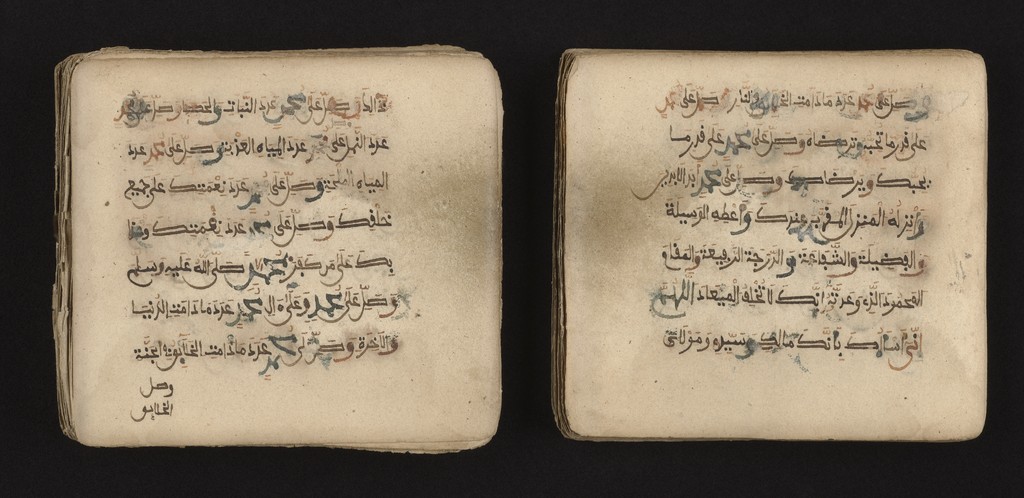 وصل على محمد عدد النبات والحصا وصل على محمد
عدد النمل على محمد عدد المياه العذبة وصل على محمد عدد
المياه الملحة وصل على محمد عدد نعمتك على جميع
خلقك وصل على محمد عدد نقمتك وعذا
بك على من كفر بمحمد صلى الله عليه وسلم
وصل على محمد وعلى ال محمد عدد ما دامت الدنيا
والاخرة وصل على محمد عدد ما دامت الخلائق في الجنة
وصل
الخلائق
وصل على محمد عدد ما دامت الخلائق في النار وصل على محمد
على قدر ما تحبه وترضاه وصل على محمد على قدر ما
يحبك ويرضاك وصل على محمد ابد الابدين
وأنزله المنزل المقرب عندك وأعطه الوسيلة
والفضيلة والشفاعة والدرجة الرفيعة والمقام
المحمود الذي وعدته إنك لا تخلف الميعاد اللهم
إني أسألك بأنك مالكي وسيدي ومولاي